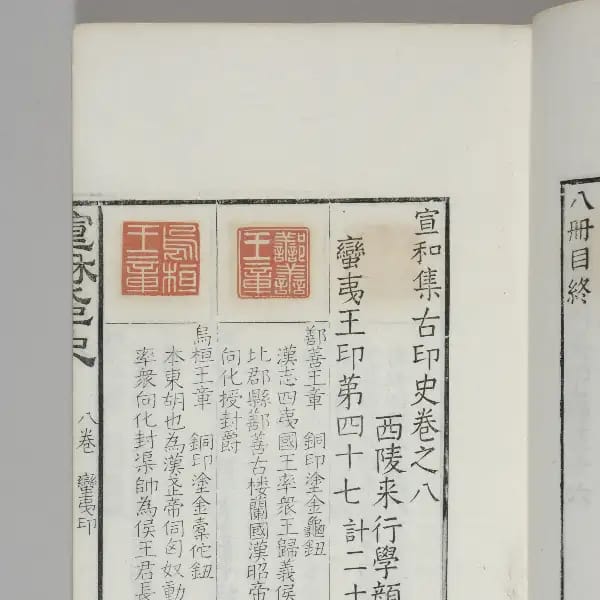 八冊目終
宣和集古印史卷之八
西陵来行學顏
蠻夷王印第四十七 計二十
鄯善王章
鄯善王章 銅印塗金龜鈕
漢志四夷國王率衆王歸義侯
比郡縣鄯善古楼蘭國漢昭帝
向化授封爵
烏桓王章
烏桓王章 銅印塗金橐佗鈕
本東胡也為漢武帝伺匈奴動
率衆向化封渠帥為侯王君長
宣龢印史
八卷 蠻夷印